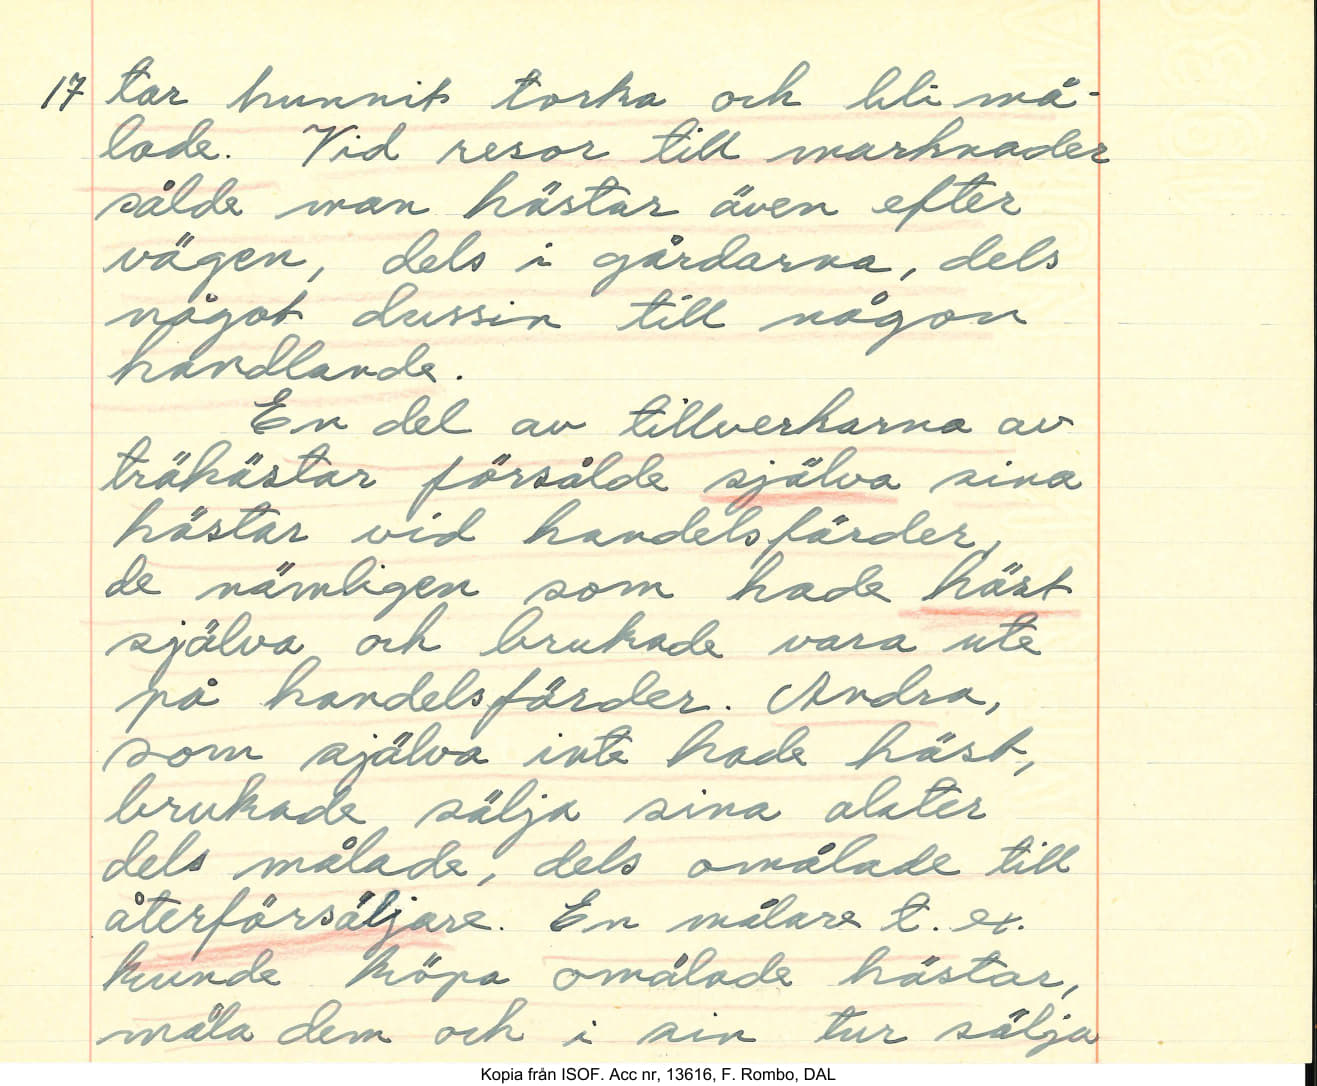 17 tar hunnit torka och bli må-
lade. Vid resor till marknader
sålde man hästar även efter
vägen, dels i gårdarna, dels
något dussin till någon
handlande.
En del av tillverkarna av
trähästar försålde själva sina
hästar vid handelsfärder,
de nämligen som hade häst
själva och brukade vara ute
på handelsfärder. Andra,
som själva inte hade häst,
brukade sälja sina alster
dels målade, dels omålade till
återförsäljare. En målare t. ex.
kunde köpa omålade hästar,
måla dem och i sin tur sälja
Kopia från ISOF. Acc nr, 13616, F. Rombo, DAL